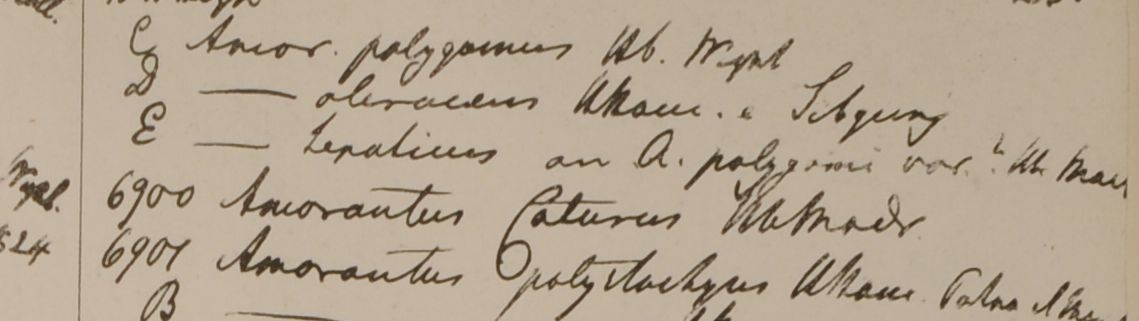 C Amar. polygamus Hb. Wight
D — oleraceus HHam. e
E — hepaticus an A. polygami var.? Hb. Mad
6900 Amarantus Caturus HbMadr
6901 Amarantus polystachyus HHam. Patna
B
Wight.
824